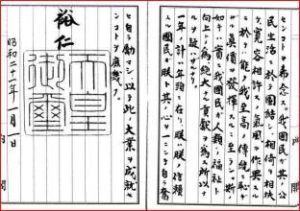 ンコトヲ希念ス。我國民ガ其ノ公
民生活ニ於テ團結シ、相倚リ相扶
ケ、寛容相許スノ氣風ヲ作興スル
ニ於テハ、能ク我至高ノ傳統ニ恥ヂ
ザル眞價ヲ發揮スルニ至ラン。斯ノ
如キハ實ニ我國民ガ人類ノ福祉ト
向上トノ爲、絶大ナル貢獻ヲ爲ス所以ナ
ルヲ疑ハザルナリ。
一年ノ計ハ年頭ニ在リ、朕ハ朕ノ信頼
スル國民ガ朕ト其ノ心ヲ一ニシテ、自ラ奮
ヒ、自ラ勵マシ、以テ此ノ大業ヲ成就セ
ンコトヲ庶幾フ。
裕仁
天皇御璽
昭和二十一年一月一日
内閣